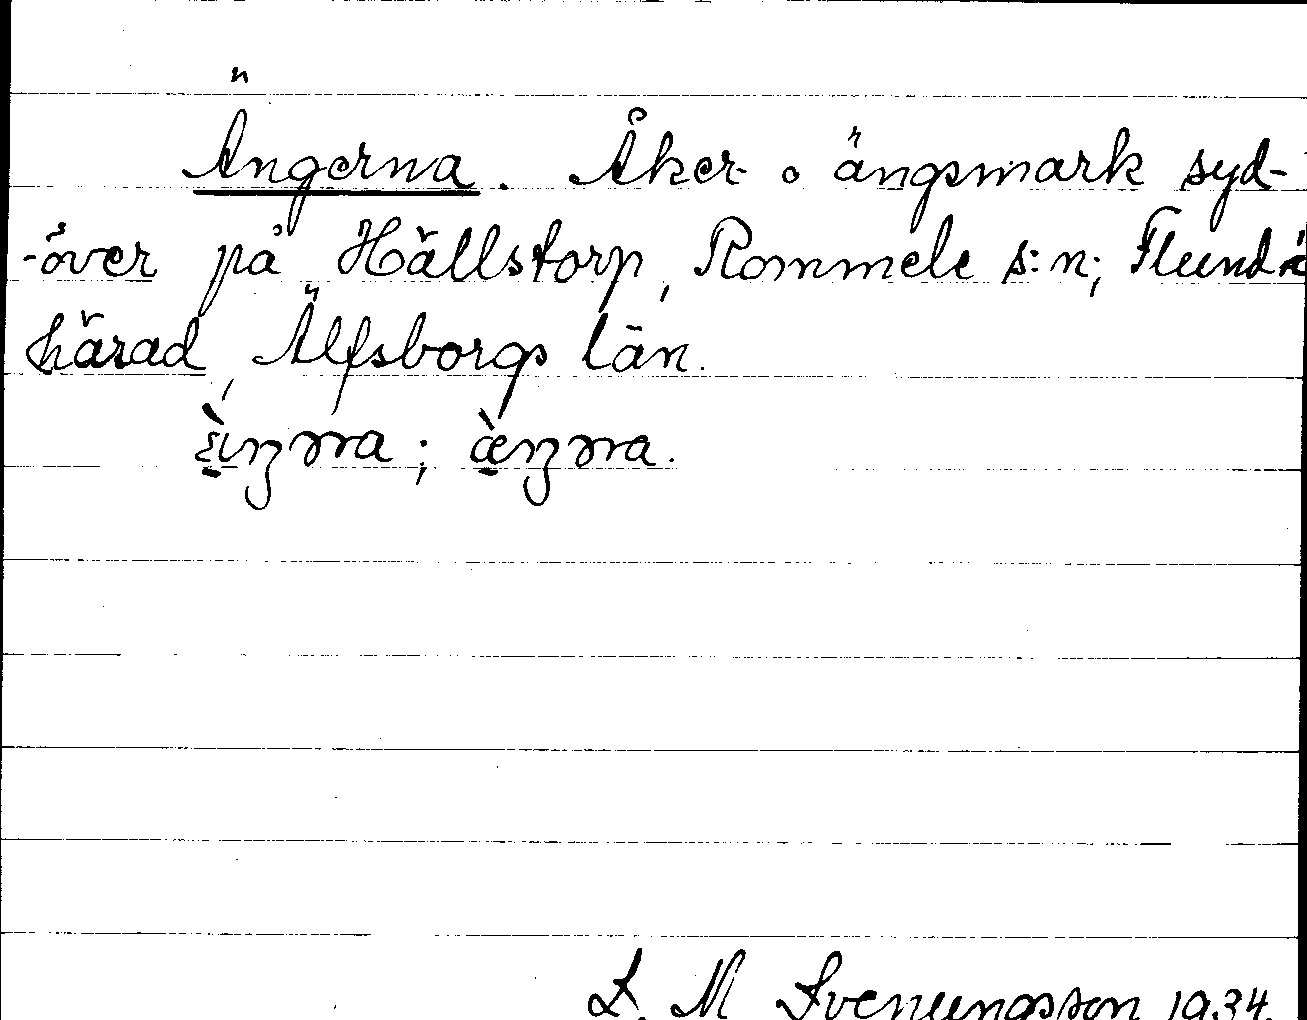 Ängerna. Åker- o ängsmark syd-
-över på Hällstorp, Rommele s:n; Flundre
härad, Älfsborgs län.
L. M Svenungsson 1934.